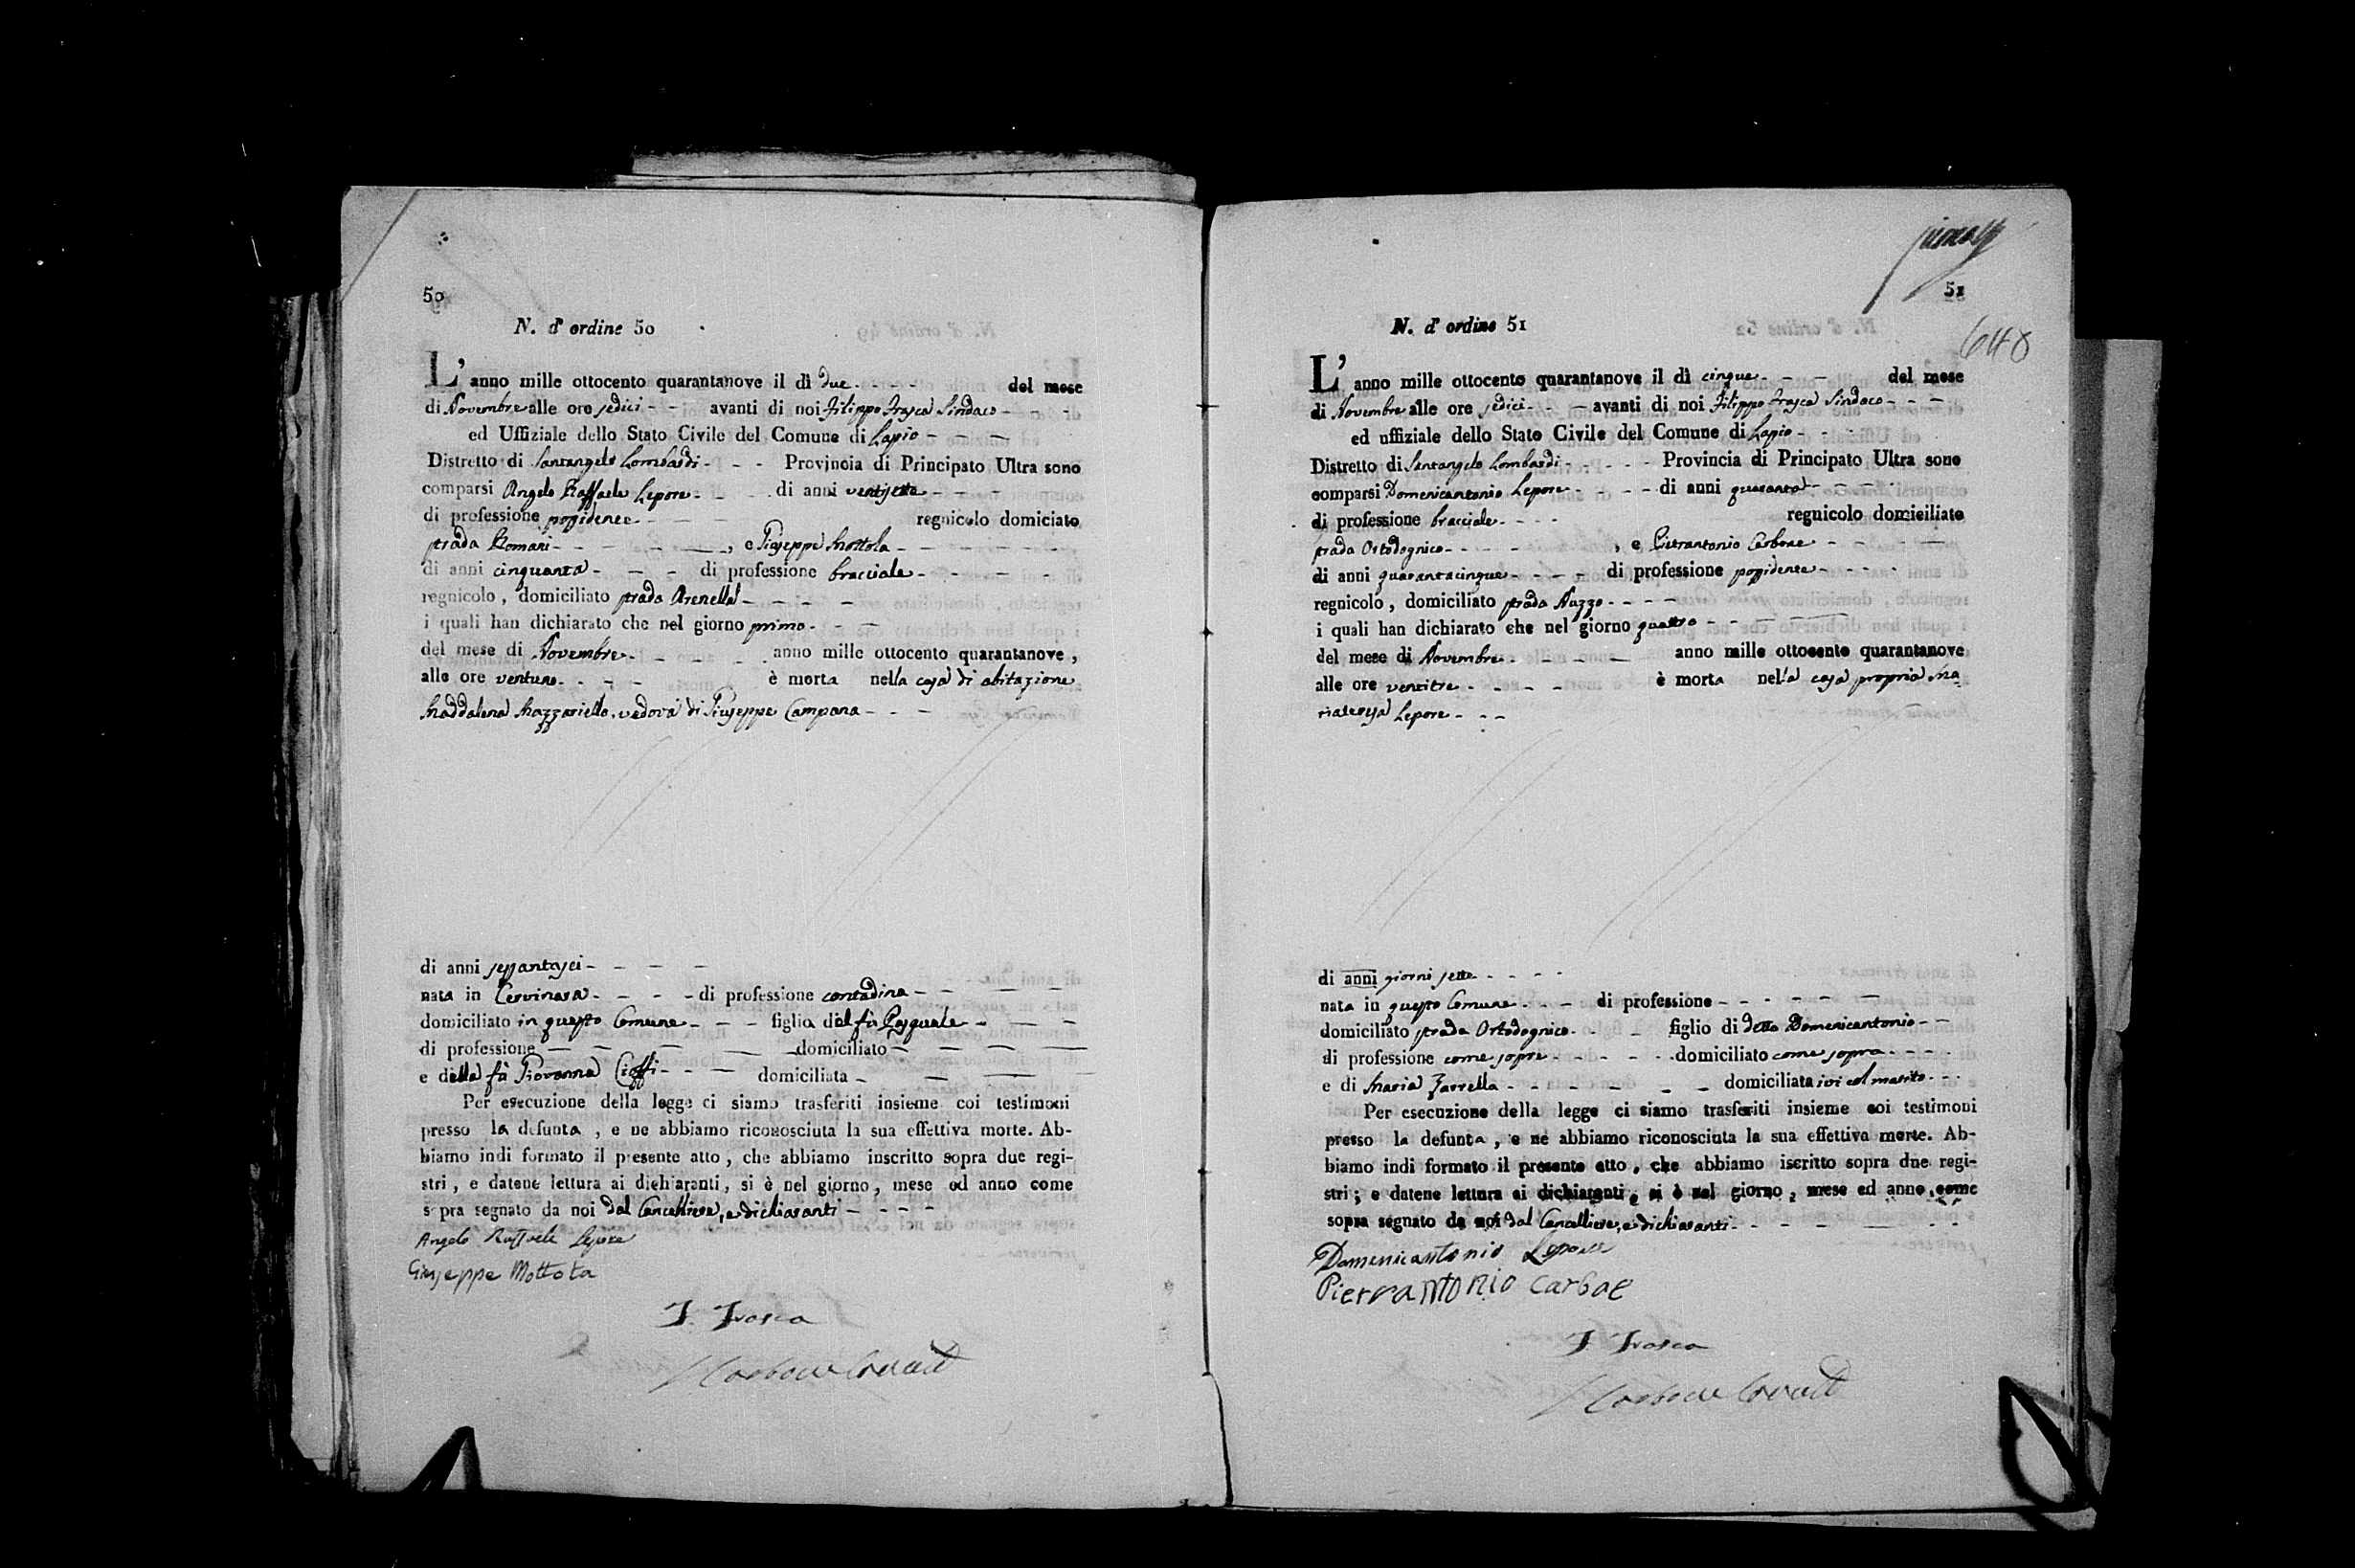 50
N. d' ordine 50
L' anno mille ottocento quarantanove il dì due del mese
di Novembre alle ore sedici avanti di noi Filippo Frasca Sindaco
ed Uffiziale dello Stato Civile del Comune di Lapio
Distretto di Santangelo Lombardi Provincia di Principato Ultra sono
comparsi Angelo Raffaele Lepore di anni ventisette
di professione possidente regnicolo domiciato
strada Romani, e Giuseppe Mottola
di anni cinquanta di professione bracciale
regnicolo, domiciliato strada Arenella
i quali han dichiarato che nel giorno primo
del mese di Novembre anno mille ottocento quarantanove,
alle ore ventuno è morta nella casa di abitazione
Maddalena Mazzariello, vedova di Giuseppe Campana
di anni sessantasei
nata in Cervinara di professione contadina
domiciliato in questo Comune figlia del fù Pasquale
di professione domiciliato
e della fù Giovanna Cioffi domiciliata
Per esecuzione della legge ci siamo trasferiti insieme coi testimoni
presso la defunta, e ne abbiamo riconosciuta la sua effettiva morte. Ab-
biamo indi formato il presente atto, che abbiamo inscritto sopra due regi-
stri, e datene lettura ai dichiaranti, si è nel giorno, mese ed anno come
s pra segnato da noi dal Cancelliere, e dichiaranti
Angelo Raffaele Lepore
Giuseppe Mottola
F. Frasca
51
648
N. d' ordine 51
L' anno mille ottocento quarantanove il dì cinque del mese
di Novembre alle ore sedici avanti di noi Filippo Frasca Sindaco
ed uffiziale dello Stato Civile del Comune di Lapio
Distretto di Santangelo Lombardi Provincia di Principato Ultra sono
comparsi Domenicantonio Lepore di anni quaranta
di professione bracciale regnicolo domiciliato
strada Ortodognico, e Pietrantonio Carbone
di anni quarantacinque di professione possidente
regnicolo, domiciliato strada Nuzzo
i quali han dichiarato che nel giorno quattro
del mese di Novembre anno mille ottocento quarantanove
alle ore ventitre è morta nella casa propria Ma
riateresa Lepore
di anni giorni sette
nata in questo Comune di professione
domiciliato strada Ortodognico figlio di detto Domenicantonio
di professione come sopra domiciliato come sopra
e di Maria Zarrella domiciliata ivi col marito
Per esecuzione della legge ci siamo trasferiti insieme coi testimoni
presso la defunta, e ne abbiamo riconosciuta la sua effettiva morte. Ab-
biamo indi formato il presente atto, che abbiamo iscritto sopra due regi-
stri; e datene lettura ai dichiaranti, si è nel giorno, mese ed anno come
sopra segnato da noi dal Cancelliere, e dichiaranti
Domenicantonio Lepore
Pietrantonio Carboe
F. Frasca